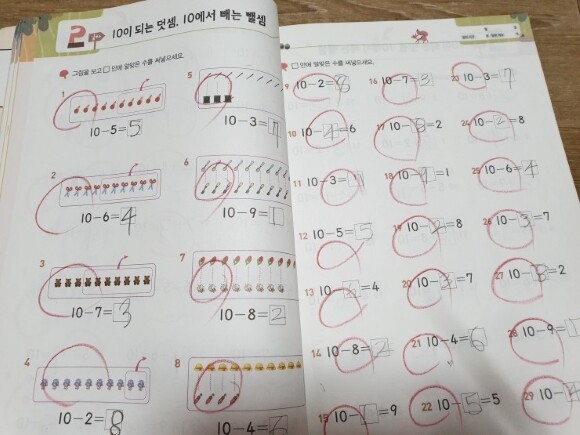 2 10이 되는 덧셈, 10에서 빼는 뺄셈
그림을 보고 □ 안에 알맞은 수를 써넣으세요.
1
10-5=5
2
10-6=4
3
10-7=3
4
10-2=8
5
10-3=7
6
10-9=1
7
10-8=2
8
10-4=6
□ 안에 알맞은 수를 써넣으세요.
9 10-2=8
10 10-4=6
11 10-3=
12 10-5=5
13 10-6=4
14 10-8=2
15 10-1=9
16 10-7=3
17 10-8=2
18 10-9=1
19 10-2=8
20 10-3=7
21 10-4=6
22 10-5=5
23 10-3=7
24 10-2=8
25 10-6=4
26 10-3=7
27 10-8=2
28 10-9=
29 10-